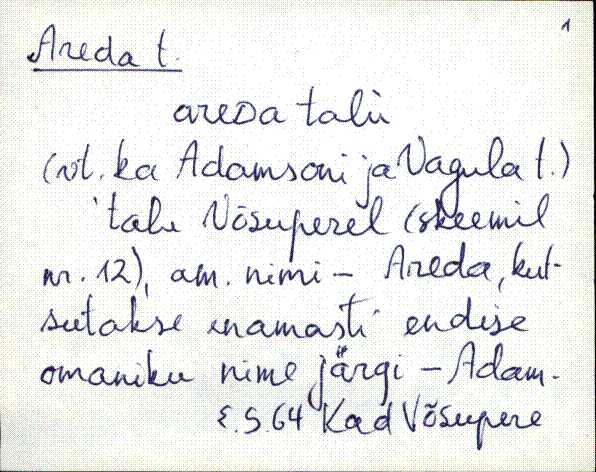 1
Areda t.
areda talu
(vt. ka Adamsoni ja Vagula t.)
'talu Võsuperel (skeemil
nr. 12), am. nimi - Areda, kut-
sutakse enamasti endise
omaniku nime järgi - Adam.
E.S. 64 Kad Võsupere